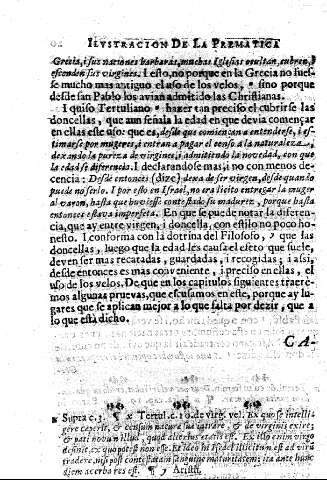 ILVSTRACION DE LA PREMATICA
Grecia, i sus naciones barbaras, muchas Iglesias ocultan, cubren, i
esconden sus virgines. I esto, no porque en la Grecia no fues-
se mucho mas antiguo el uso de los velos, sino porque
desde san Pablo los avian admitido las Christianas.
I quiso Tertuliano hazer tan preciso el cubrirse las
doncellas, que aun señala la edad en que devia començar
en ellas este uso: que es, desde que comiençan a entenderse, i es-
timarse por mugeres, i entran a pagar el censo a la naturaleza,
dexando la pureza de virgines, i admitiendo la novedad, con que
la edad se diferencia. I declarandose mas, i no con menos de-
cencia: Desde entonces (dize) dexa de ser virgen, desde quando
puede no serlo. I por esto en Israel, no era licito entregar la muger
al varon, hasta que huviesse contestado su madurez, porque hasta
entonces estava imperfeta. En que se puede notar la diferen-
cia, que ay entre virgen, i doncella, con estilo no poco ho-
nesto. I conforma con la dotrina del Filosofo, y que las
doncellas, luego que la edad les causa el efeto que suele,
deven ser mas recatadas, guardadas, i recogidas; i assi,
desde entonces es mas conveniente, i preciso en ellas, el
uso de los velos. De que en los capitulos siguientes traere-
mos algunas pruevas, que escusamos en este, porque ay lu-
gares que se aplican mejor a lo que falta por dezir, que a
lo que està dicho.
CA-
Supra c. 3. ¶ x Tertul. c. 10. de virg. vel. Ex quo se intelli-
gere ceperit, & censum naturæ suæ intrare, & de virginis exire;
& pati novum illud, quod alterius ætatis est. Ex illo enim virgo
definit, ex quo potest non esse. Et ideo in Israel illicitum est ad virū
tradere, nisi post contestatam sanguine maturitatem; ita ante hunc
diem acerba res est. ¶ y Aristt.